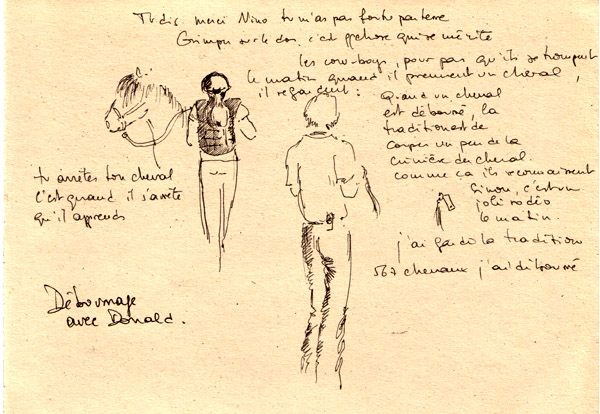 Tu dis merci Nino tu m'as pas foutu par terre
Grimper sur le dos c'est qqchose qui se mérite
les cow-boys, pour pas qu'ils se trompent
le matin quand il prennent un cheval,
il regardent :
Quand un cheval
est débourré, la
tradition est de
couper un peu de la
crinière du cheval.
comme ça ils reconnaissent
Sinon, c'est un
joli rodéo
le matin.
j'ai gardé la tradition
567 chevaux j'ai débourré
tu arrêtes ton cheval
c'est quand il s'arrête
qu'il apprends
Débourrage
avec Donald.